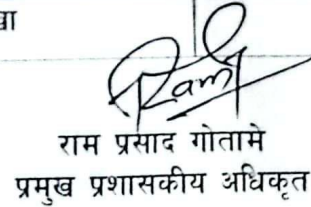 Ram
राम प्रसाद गोतामे
प्रमुख प्रशासकीय अधिकृत